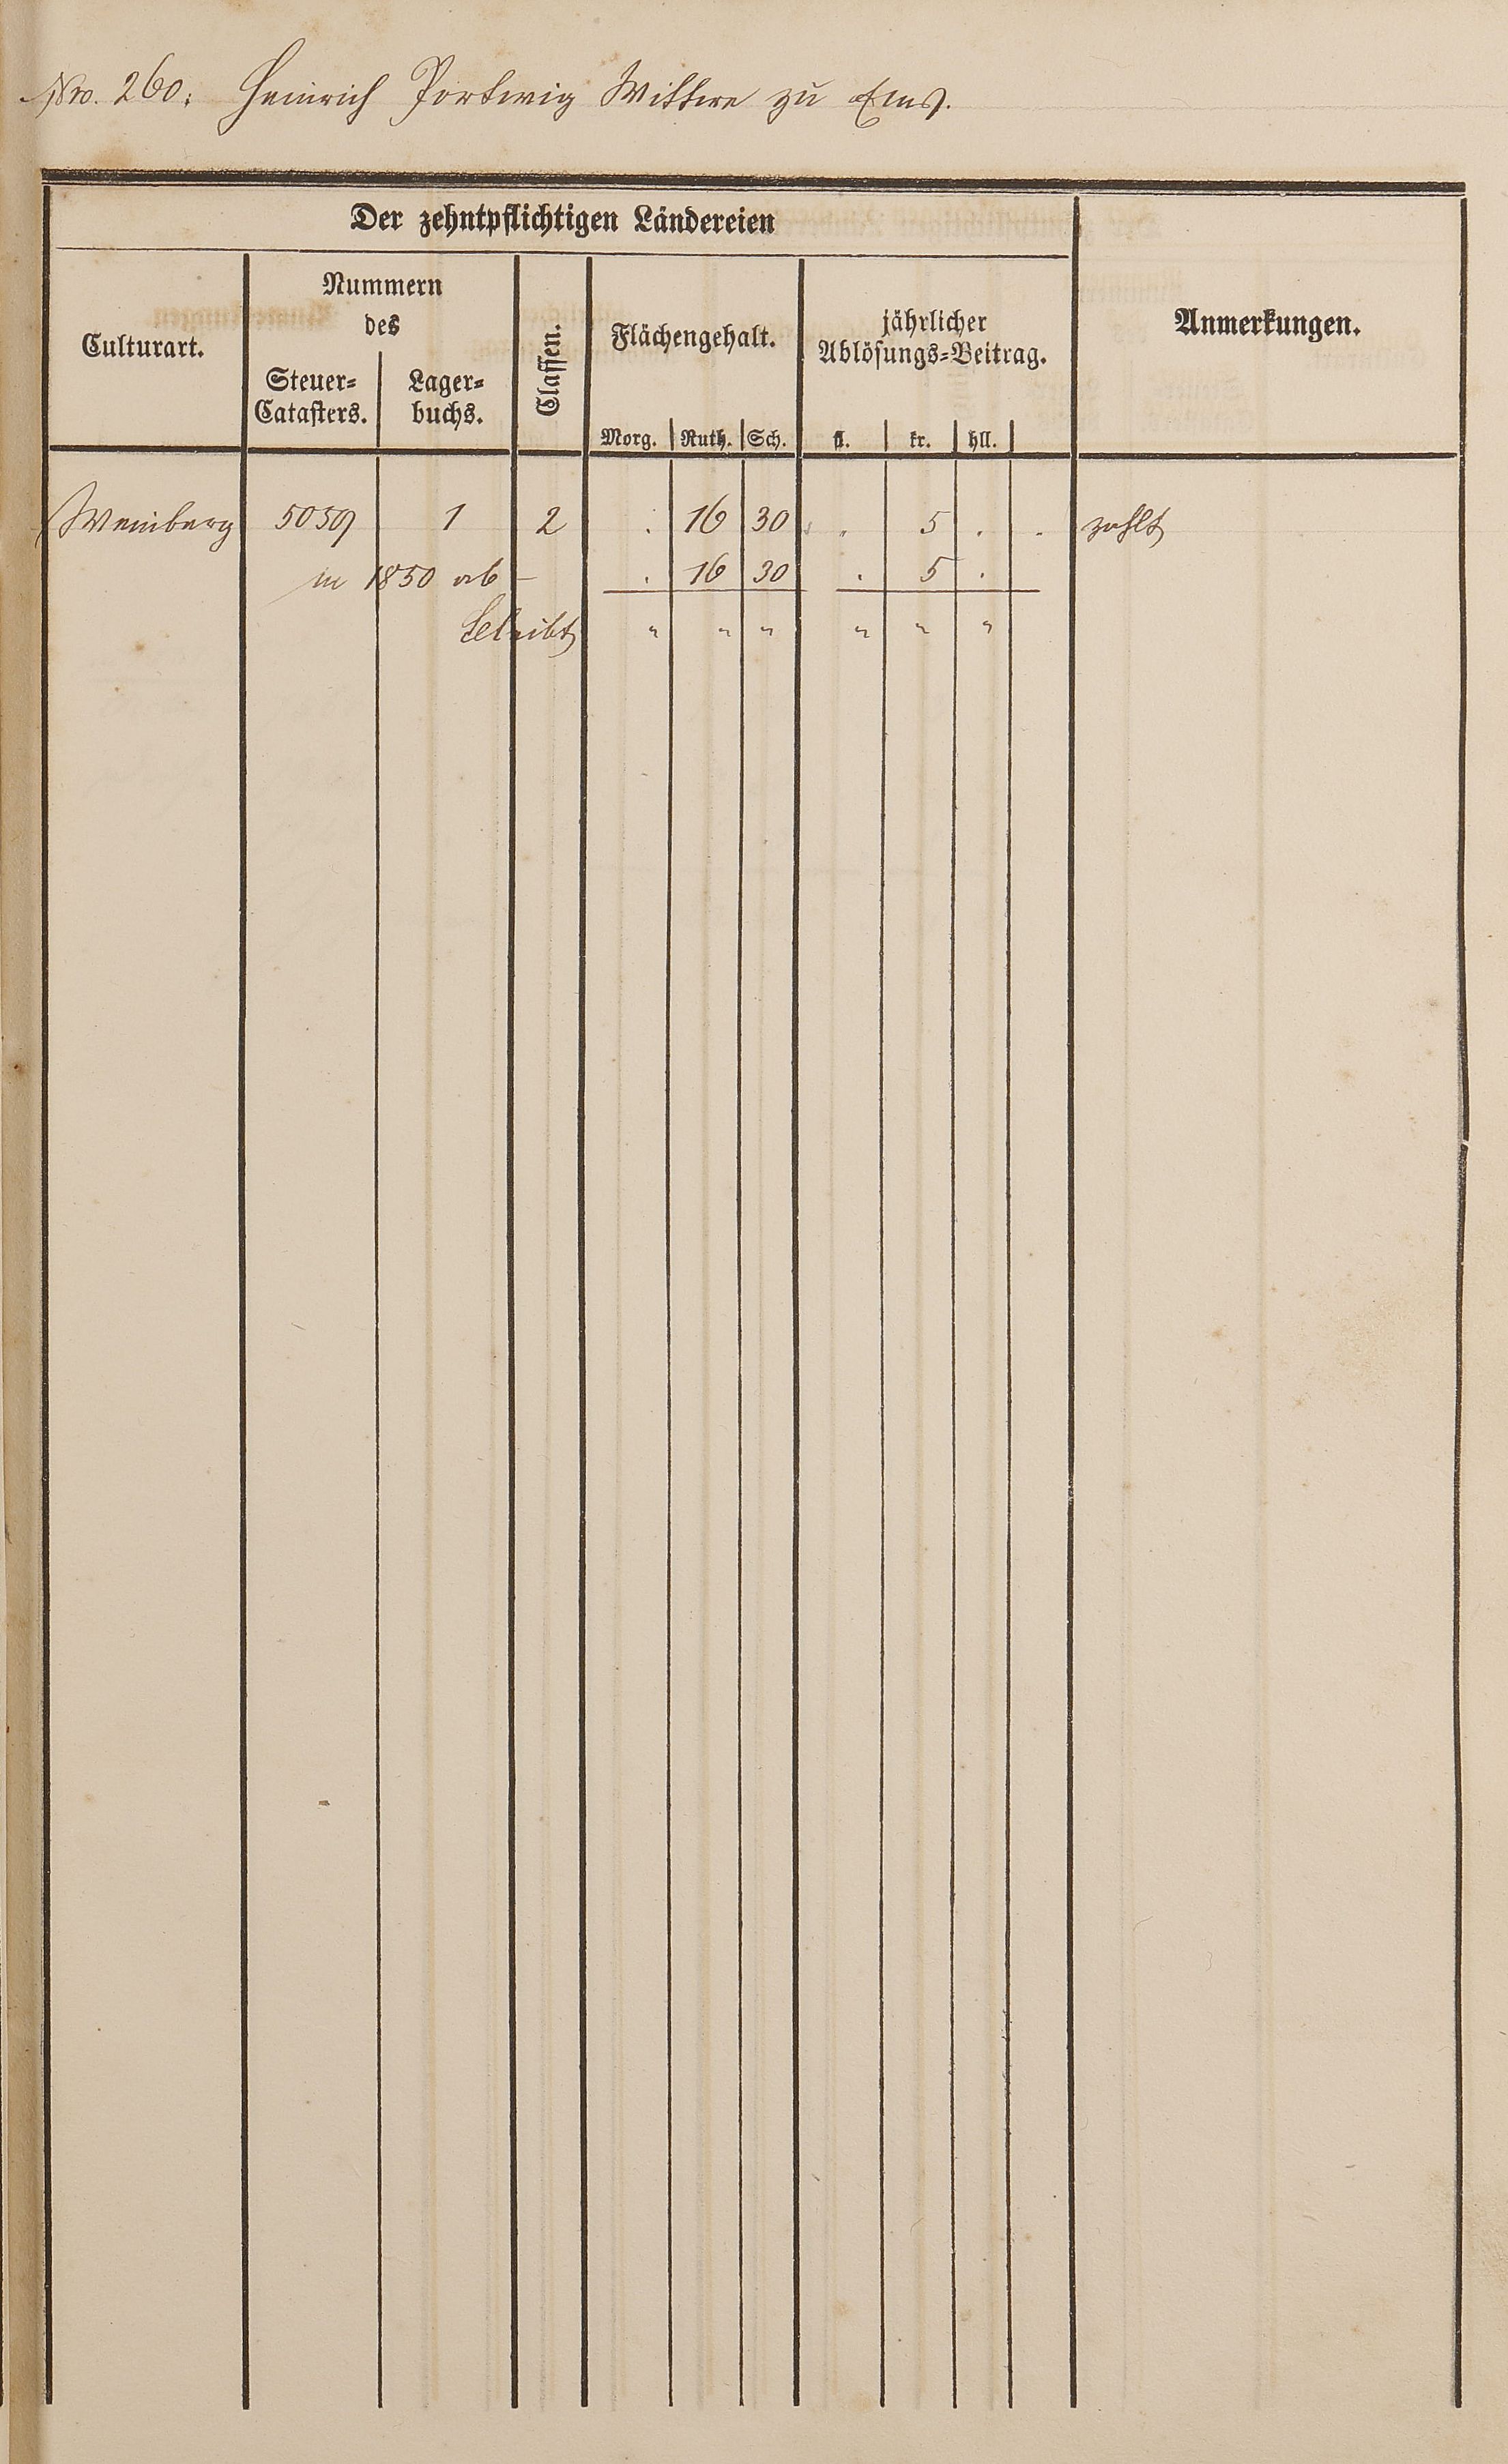 Nro. 260. Heinrich Portwig Wittwe zu Ems.
Der zehntpflichtigen Ländereien
Culturart.
Nummern
des
Steuer-
Catasters.
Lager-
buchs.
Classen.
Flächengehalt.
Morg. Ruth. Sch.
jährlicher
Ablösungs-Beitrag.
fl. kr. hll.
Anmerkungen.
Weinberg 5059 1 2 . 16 30 . 5 . . zahlt
in 1850 ab – . 16 30 . 5 .
bleibt " " " " " "